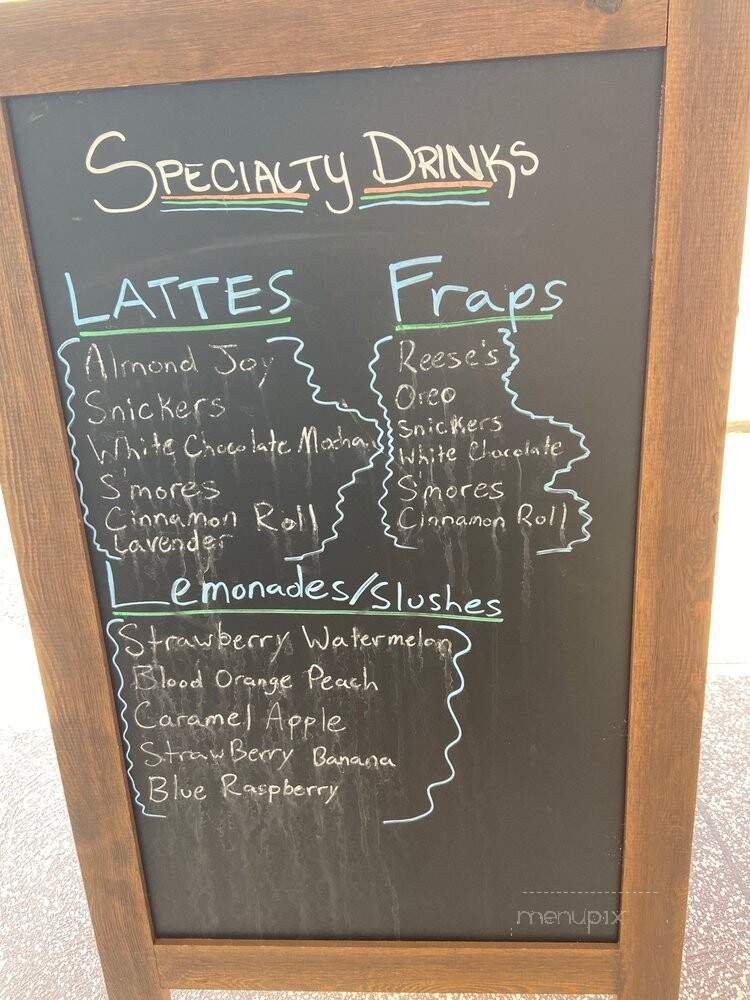 SPECIALTY DRINKS
LATTES
Almond Joy
Snickers
White Chocolate Mocha
S'mores
Cinnamon Roll
Lavender
Fraps
Reese's
Oreo
Snickers
White Chocolate
S'mores
Cinnamon Roll
Lemonades/Slushes
Strawberry Watermelon
Blood Orange Peach
Caramel Apple
StrawBerry Banana
Blue Raspberry
menupix